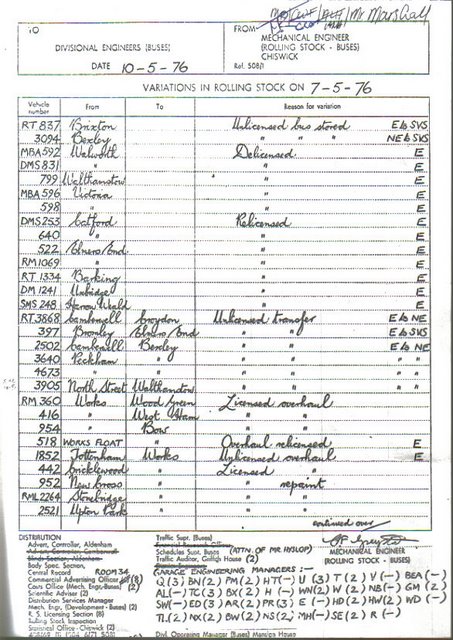 Mr Marshall
TO
FROM
DIVISIONAL ENGINEERS (BUSES)
MECHANICAL ENGINEER
(ROLLING STOCK - BUSES)
CHISWICK
DATE 10-5-76
Ref. 508/1
VARIATIONS IN ROLLING STOCK ON 7-5-76
Vehicle number From To Reason for variation
RT 837 Brixton Unlicensed bus stored E to SVS
3094 Bexley " " " NE to SVS
MBA 592 Walworth Delicensed E
DMS 831 " " E
799 Walthamstow " E
MBA 596 Victoria " E
598 " " E
DMS 253 Catford Relicensed E
640 " " E
522 Elmers End " E
RM 1069 " " E
RT 1334 Barking " E
DM 1241 Uxbridge " E
SMS 248 Harrow Weald " E
RT 3868 Camberwell Croydon Unlicensed transfer E to NE
397 Bromley Elmers End " " E to SVS
2502 Camberwell Bexley " " E to NE
3640 Peckham " " " " "
4673 " " " " " "
3905 North Street Walthamstow " " " "
RM 360 Works Wood Green Licensed overhaul
416 " West Ham " "
954 " Bow " "
518 WORKS FLOAT Overhaul relicensed E
1852 Tottenham Works Unlicensed overhaul E
442 Cricklewood " Licensed "
952 New Cross " " repaint
RML 2264 Stonebridge " " "
2521 Upton Park " " "
continued over
DISTRIBUTION
Advert. Controller, Aldenham
Body Spec. Section,
Central Record ROOM 34
Commercial Advertising Officer (8)
Costs Office (Mech. Engr.-Buses) (2)
Scientific Adviser
Distribution Services Manager
Mech. Engr, (Development - Buses) (2)
R. S. Licensing Section (8)
Rolling Stock Inspection
Statistical Office - Chiswick (2)
Traffic Supt. Buses
Schedules Supt. Buses (ATTN. OF MR HYSLOP)
Traffic Auditor, Griffith House (2)
MECHANICAL ENGINEER
(ROLLING STOCK - BUSES)
GARAGE ENGINEERING MANAGERS :-
Q (3) BN (2) PM (2) HT (-) U (3) T (2) V (-) BEA (-)
AL (-) TC (3) BX (2) H (-) WN (2) W (2) NB (-) GM (2)
SW (-) ED (3) AR (2) PR (3) E (-) HD (2) HW (2) WD (-)
TL (2) NX (2) BW (2) NS (2) MH (-) SE (2) R (-)
Divl. Operating Manager (Buses) Mansion House